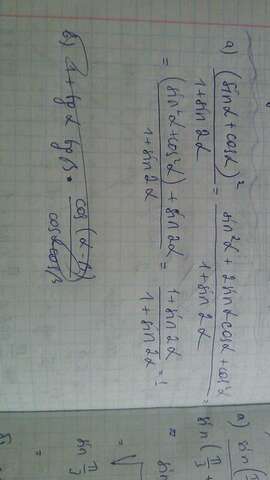 а) (sinα + cosα)² / 1 + sin2α = sin²α + 2sinα cosα + cos²α / 1 + sin2α =
= (sin²α + cos²α) + sin2α / 1 + sin2α = 1 + sin2α / 1 + sin2α = 1
б) 1 + tgα tgβ · cos(α-β) / cosα cosβ
а) sin(
sin(π/3 +
= sin
sin π/3
=